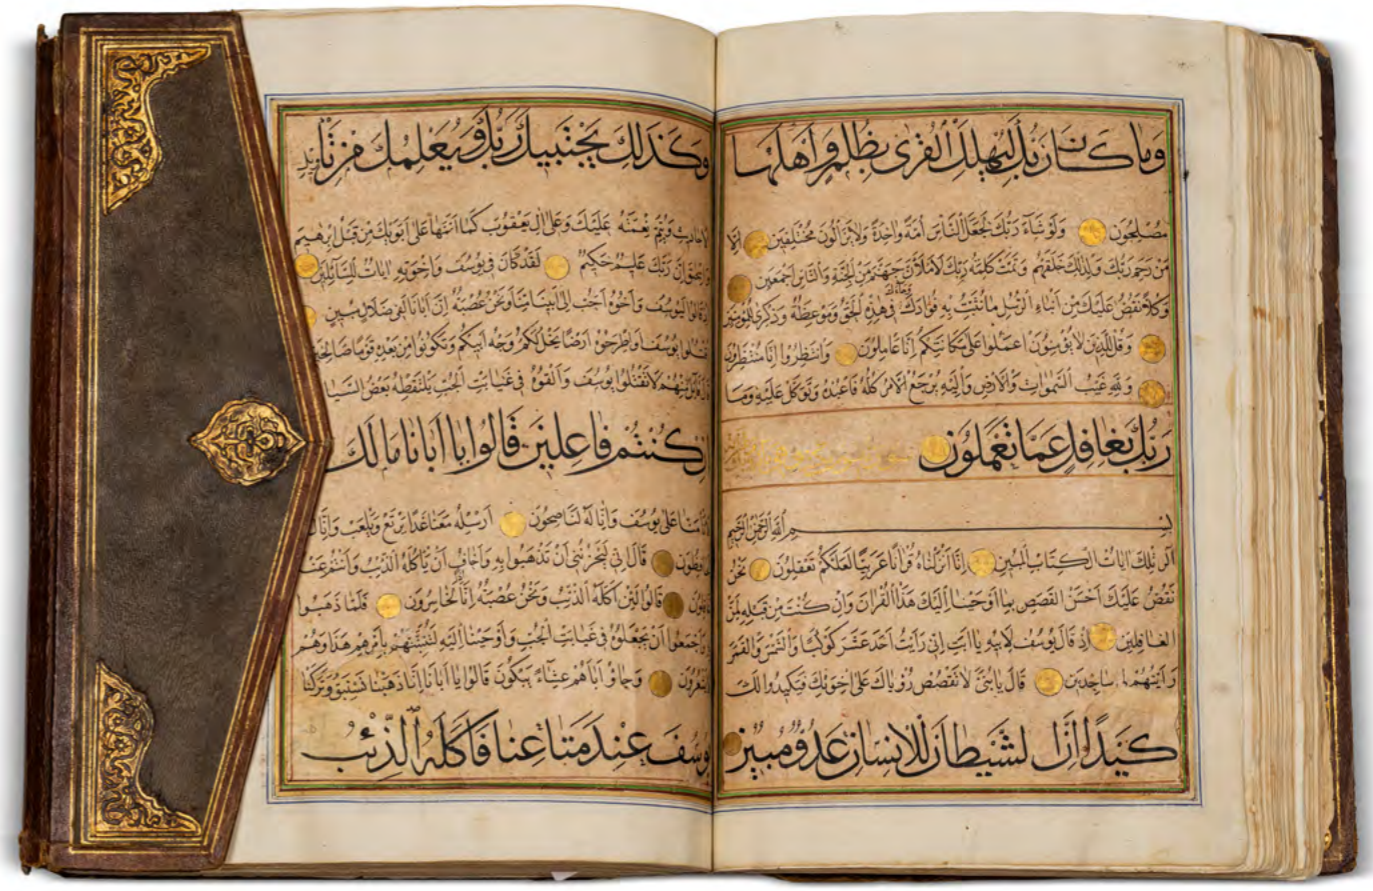 وما كان ربك ليهلك القرى بظلم واهلها
مصلحون ولو شاء ربك لجعل الناس امة واحدة ولا يزالون مختلفين الا
من رحم ربك ولذلك خلقهم وتمت كلمة ربك لاملان جهنم من الجنة والناس اجمعين
وكلا نقص عليك من انباء الرسل ما نثبت به فوادك وجاءك في هذه الحق وموعظة وذكرى للمومنين
وقل للذين لا يومنون اعملوا على مكانتكم انا عاملون وانتظروا انا منتظرون
ولله غيب السموات والارض واليه يرجع الامر كله فاعبده وتوكل عليه وما
ربك بغافل عما تعملون
بسم الله الرحمن الرحيم
الر تلك ايات الكتاب المبين انا انزلناه قرانا عربيا لعلكم تعقلون نحن
نقص عليك احسن القصص بما اوحينا اليك هذا القران وان كنت من قبله لمن
الغافلين اذ قال يوسف لابيه يا ابت اني رايت احد عشر كوكبا والشمس والقمر
رايتهم لي ساجدين قال يا بني لا تقصص روياك على اخوتك فيكيدوا لك
كيدا ان الشيطان للانسان عدو مبين
وكذلك يجتبيك ربك ويعلمك من تاويل
الاحاديث ويتم نعمته عليك وعلى ال يعقوب كما اتمها على ابويك من قبل ابرهيم
واسحق ان ربك عليم حكيم لقد كان في يوسف واخوته ايات للسائلين
اذ قالوا ليوسف واخوه احب الى ابينا منا ونحن عصبة ان ابانا لفي ضلال مبين
اقتلوا يوسف او اطرحوه ارضا يخل لكم وجه ابيكم وتكونوا من بعده قوما صالحين
قال قائل منهم لا تقتلوا يوسف والقوه في غيابت الجب يلتقطه بعض السيا
ان كنتم فاعلين قالوا يا ابانا ما لك
لا تامنا على يوسف وانا له لناصحون ارسله معنا غدا يرتع ويلعب وانا له
لحافظون قال اني ليحزنني ان تذهبوا به واخاف ان ياكله الذئب وانتم عنه
غافلون قالوا لئن اكله الذئب ونحن عصبة انا اذا لخاسرون فلما ذهبوا
واجمعوا ان يجعلوه في غيابت الجب واوحينا اليه لتنبئنهم بامرهم هذا وهم
لا يشعرون وجاؤ اباهم عشاء يبكون قالوا يا ابانا انا ذهبنا نستبق وتركنا
يوسف عند متاعنا فاكله الذئب